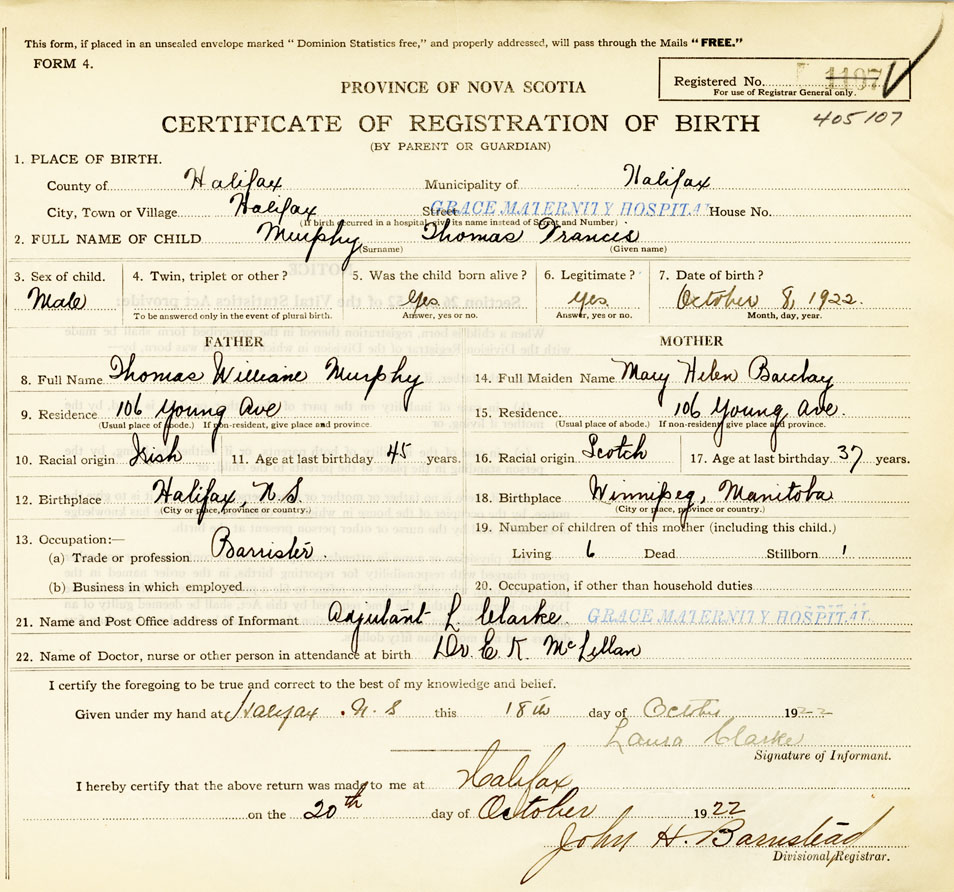 This form, if placed in an unsealed envelope marked " Dominion Statistics free," and properly addressed, will pass through the Mails "FREE."
FORM 4.
Registered No. 1107
For use of Registrar General only.
PROVINCE OF NOVA SCOTIA
405107
CERTIFICATE OF REGISTRATION OF BIRTH
(BY PARENT OR GUARDIAN)
1. PLACE OF BIRTH.
County of Halifax Municipality of Halifax
City, Town or Village Halifax Street GRACE MATERNITY HOSPITAL House No.
(If birth occurred in a hospital, give its name instead of Street and Number)
2. FULL NAME OF CHILD Murphy Thomas Francis
(Surname) (Given name)
3. Sex of child. 4. Twin, triplet or other? 5. Was the child born alive? 6. Legitimate? 7. Date of birth?
Male Yes. Yes. October 8, 1922.
To be answered only in the event of plural birth. Answer, yes or no. Answer, yes or no. Month, day, year.
FATHER MOTHER
8. Full Name Thomas William Murphy 14. Full Maiden Name Mary Helen Barclay
9. Residence 106 Young Ave 15. Residence. 106 Young Ave.
(Usual place of abode.) If non-resident, give place and province. (Usual place of abode.) If non-resident give place and province.
10. Racial origin Irish 11. Age at last birthday 45 years. 16. Racial origin Scotch 17. Age at last birthday 37 years.
12. Birthplace Halifax, N.S. 18. Birthplace Winnipeg, Manitoba
(City or place, province or country.) (City or place, province or country.)
13. Occupation:— 19. Number of children of this mother (including this child.)
(a) Trade or profession Barrister. Living 6 Dead Stillborn 1
(b) Business in which employed 20. Occupation, if other than household duties
21. Name and Post Office address of Informant Adjutant L Clarke. GRACE MATERNITY HOSPITAL
22. Name of Doctor, nurse or other person in attendance at birth Dr. E K. McLellan
I certify the foregoing to be true and correct to the best of my knowledge and belief.
Given under my hand at Halifax . N. S this 18th day of October 1922
Laura Clarke
Signature of Informant.
I hereby certify that the above return was made to me at Halifax
on the 20th day of October 1922
John H. Barnstead
Divisional Registrar.